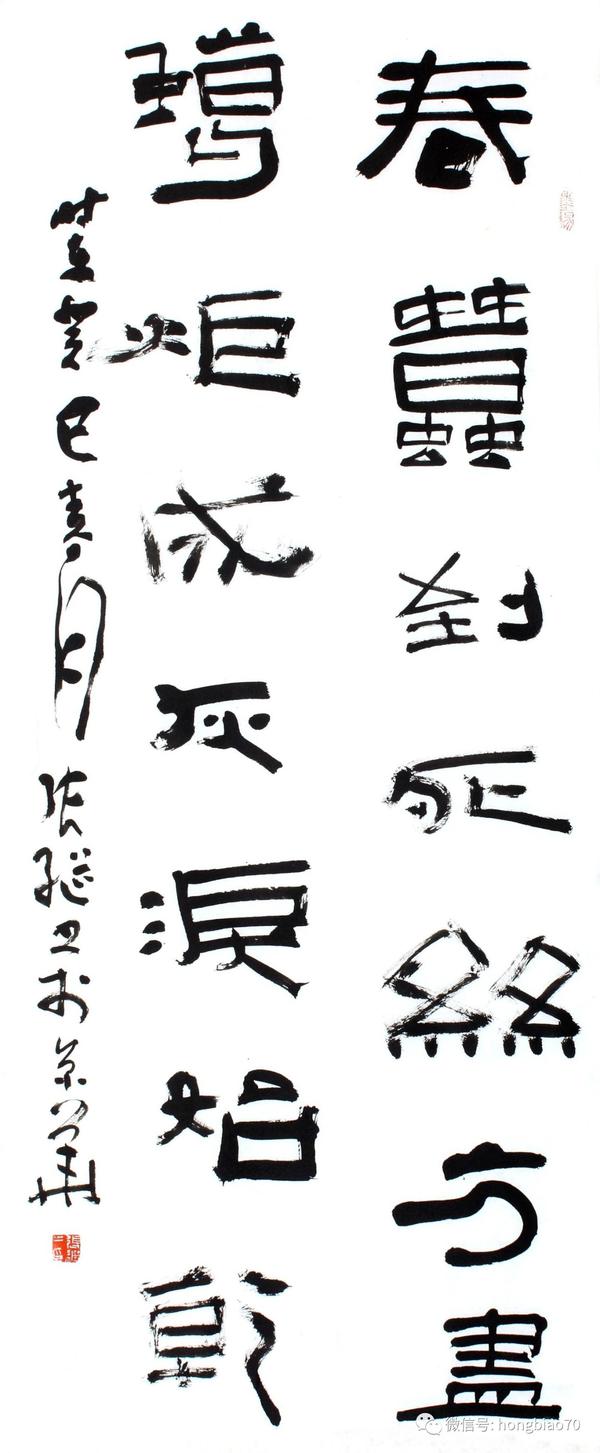 春蠶到死絲方盡
蠟炬成灰淚始乾
时在癸巳春月张继书於京華
微信号: hongbiao70